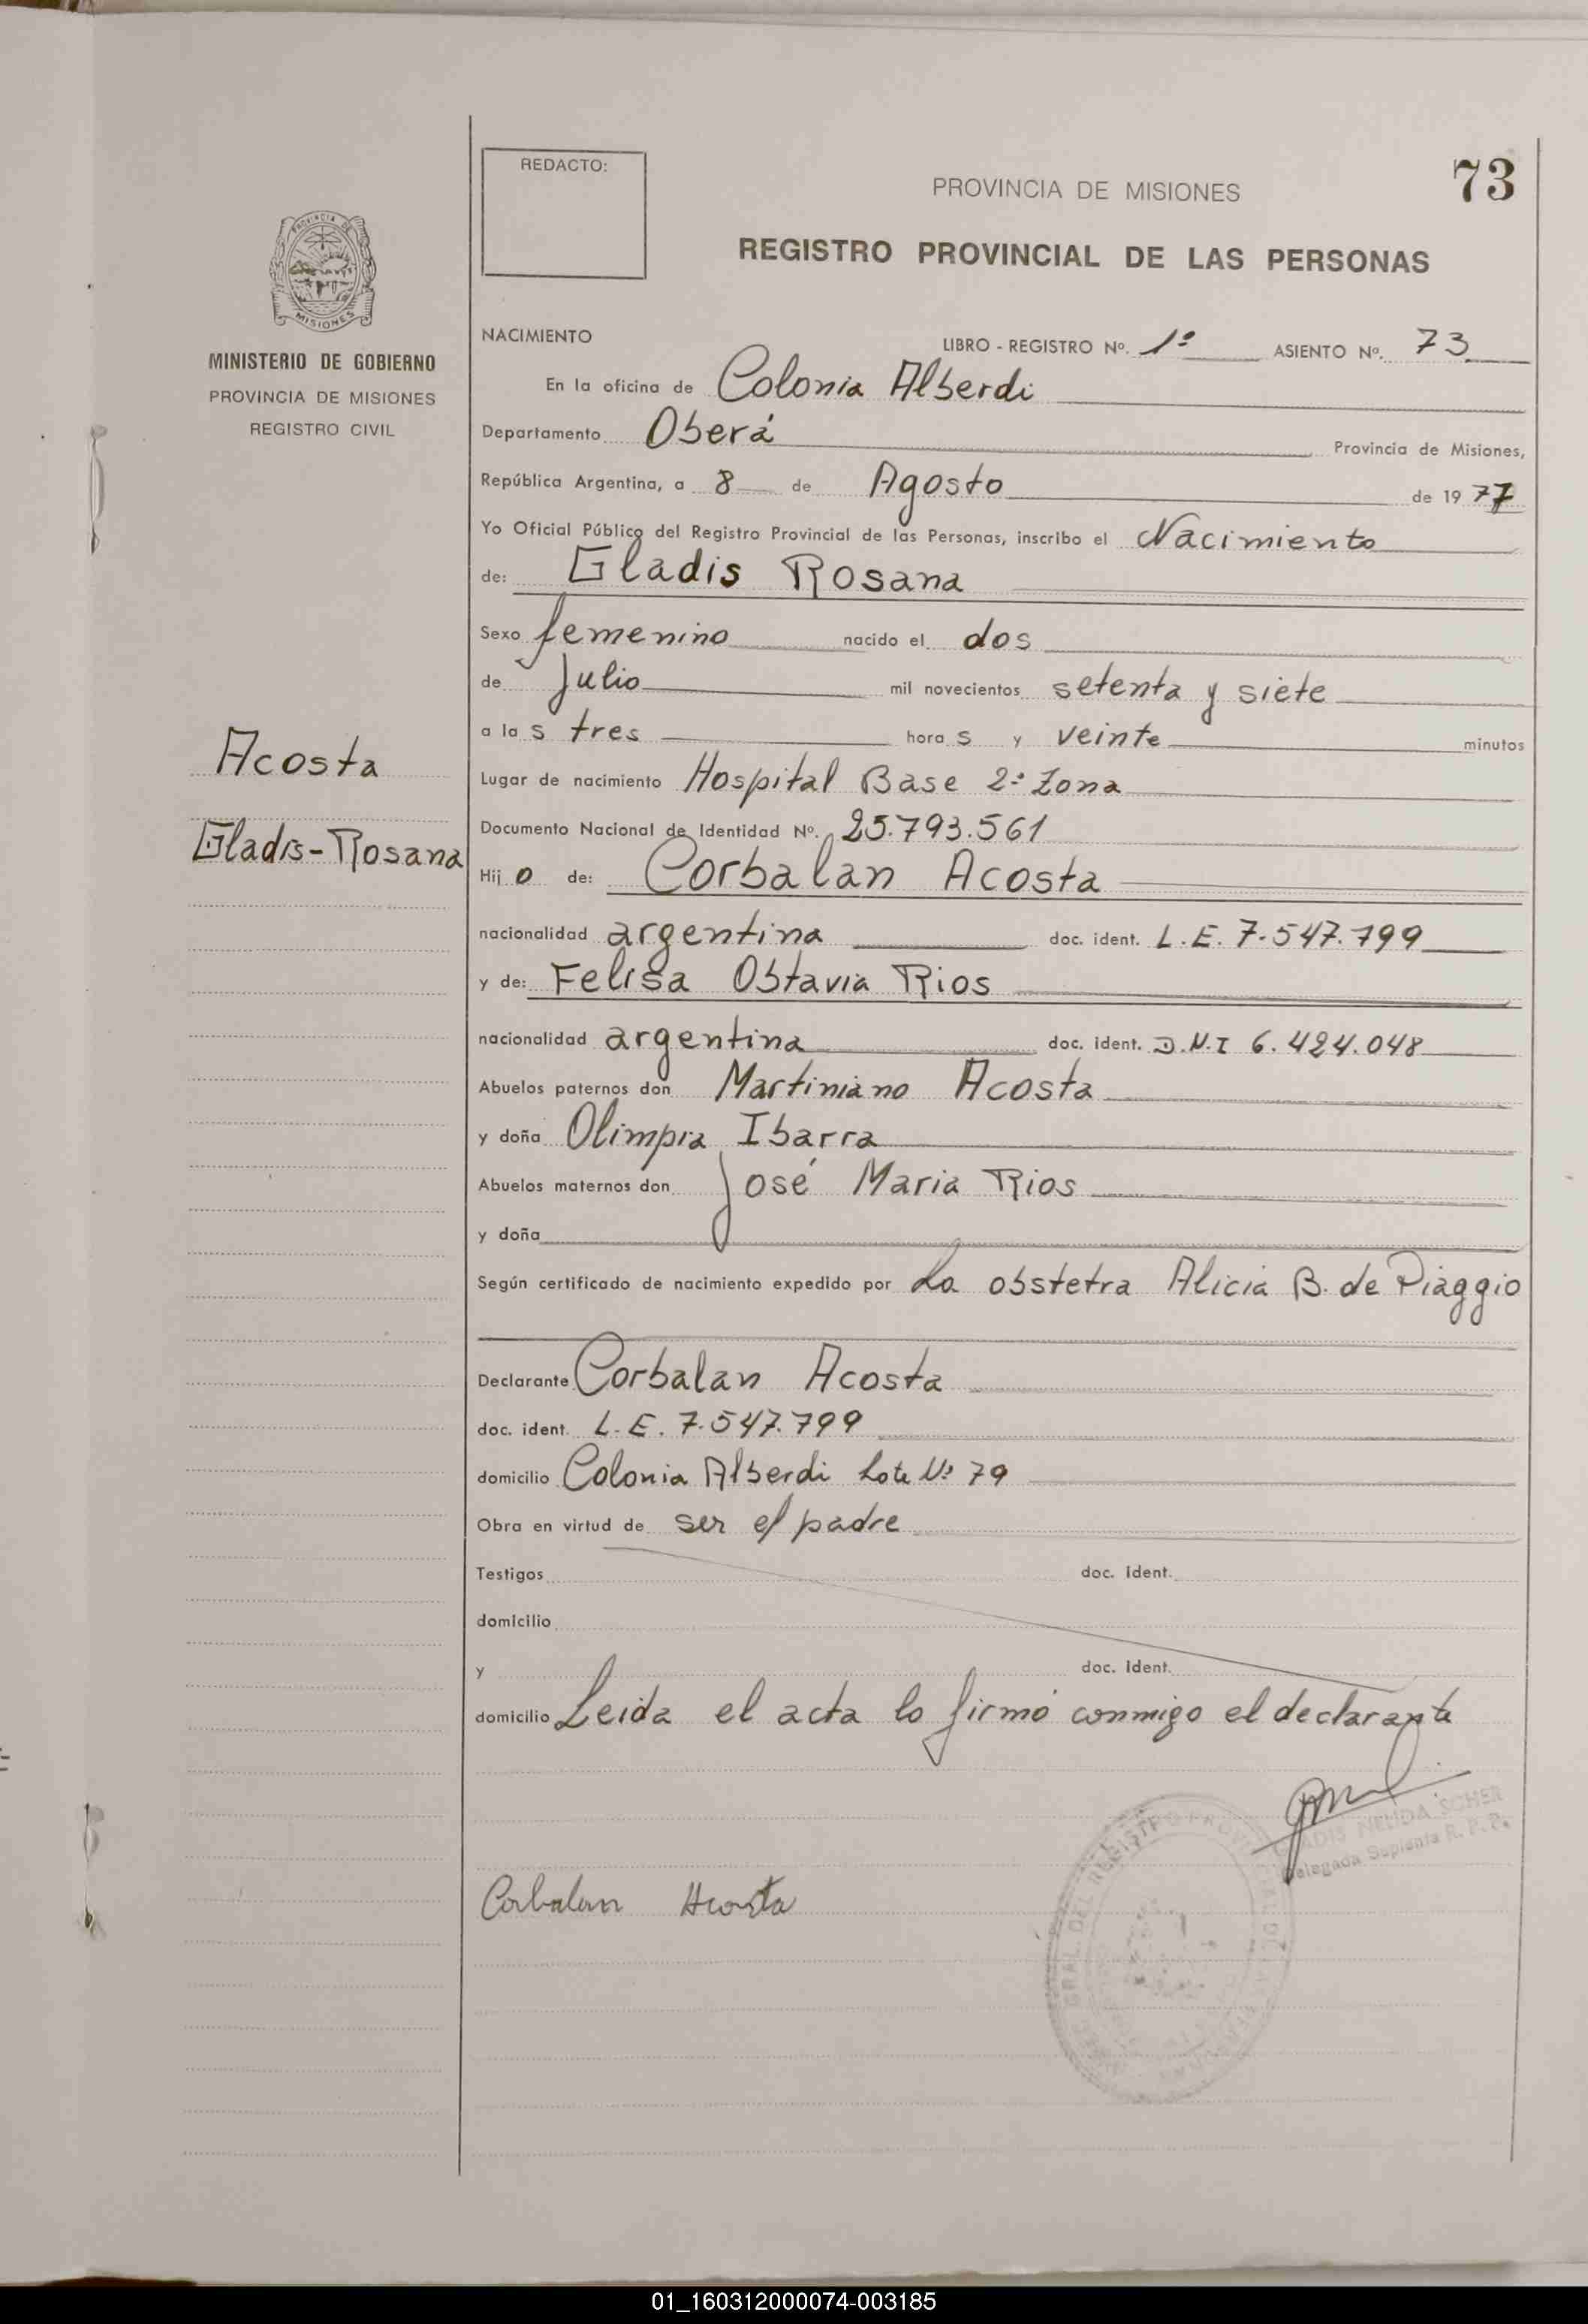 REDACTO:
PROVINCIA DE MISIONES
73
REGISTRO PROVINCIAL DE LAS PERSONAS
PROVINCIA DE
MISIONES
MINISTERIO DE GOBIERNO
PROVINCIA DE MISIONES
REGISTRO CIVIL
Acosta
Gladis-Rosana
NACIMIENTO LIBRO - REGISTRO Nº. 1º ASIENTO Nº. 73
En la oficina de Colonia Alberdi
Departamento Oberá Provincia de Misiones,
República Argentina, a 8 de Agosto de 1977
Yo Oficial Público del Registro Provincial de las Personas, inscribo el Nacimiento
de: Gladis Rosana
Sexo femenino nacido el dos
de Julio mil novecientos setenta y siete
a las tres horas y veinte minutos
Lugar de nacimiento Hospital Base 2º Zona
Documento Nacional de Identidad Nº. 25.793.561
Hijo de: Corbalan Acosta
nacionalidad argentina doc. ident. L.E. 7.547.799
y de: Felisa Obtavia Rios
nacionalidad argentina doc. ident. D.N.I 6.424.048
Abuelos paternos don Martiniano Acosta
y doña Olimpia Ibarra
Abuelos maternos don José Maria Rios
y doña
Según certificado de nacimiento expedido por La obstetra Alicia B. de Piaggio
Declarante Corbalan Acosta
doc. ident. L.E. 7.547.799
domicilio Colonia Alberdi Lote Nº 79
Obra en virtud de ser el padre
Testigos doc. ident.
domicilio
y doc. ident.
domicilio Leida el acta lo firmó conmigo el declarante
NELIDA SCHER
Delegada Suplente R. P. P.
Corbalan Acosta
01_160312000074-003185